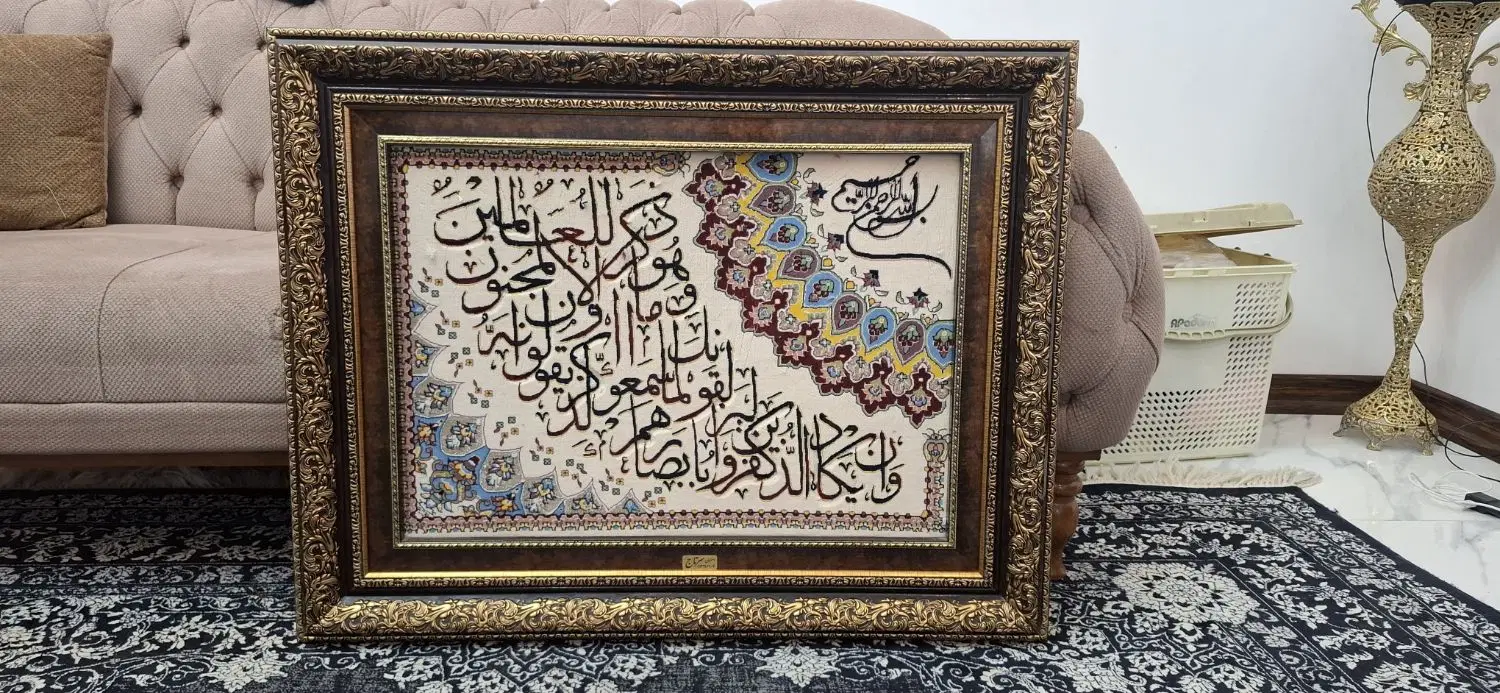 بسم الله الرحمن الرحیم
وَان یکاد الّذین کفروا
لیزلقونک بابصارهم
لمّا سمعوا الذّکر
و یقولون انّه لمجنون
و ما هو الا ذکر للعالمین
APadana